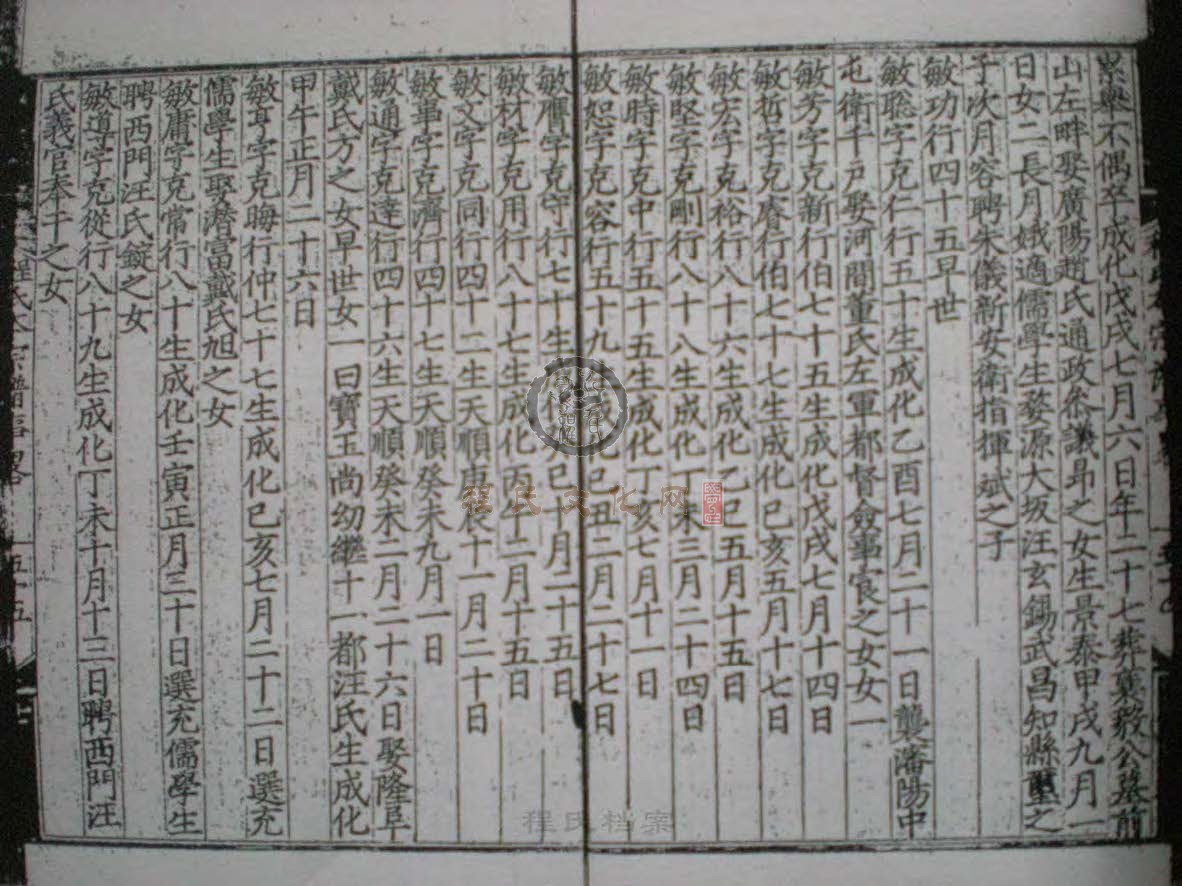 累舉不偶卒成化戊戌七月六日年二十七葬襄毅公墓前
山左畔娶廣陽趙氏通政叅議昂之女生景泰甲戌九月一
日女二長月娥適儒學生婺源大坂汪玄錫武昌知縣璽之
子次月容聘朱儀新安衛指揮斌之子
敏功行四十五早世
敏聡字克仁行五十生成化乙酉七月二十一日襲瀋陽中
屯衛千戶娶河間董氏左軍都督僉事宸之女女一
敏芳字克新行伯七十五生成化戊戌七月十四日
敏哲字克睿行伯七十七生成化己亥五月十七日
敏宏字克裕行八十六生成化乙巳五月十五日
敏堅字克剛行八十八生成化丁未三月二十四日
敏時字克中行五十五生成化丁亥七月十一日
敏恕字克容行五十九生成化己丑二月二十七日
敏膺字克守行七十生 己十月二十五日
敏材字克用行八十七生成化丙午十二月十五日
敏文字克同行四十二生天順庚辰十一月二十日
敏事字克濟行四十七生天順癸未九月一日
敏通字克達行四十六生天順癸未二月二十六日娶隆阜
戴氏方之女早世女一曰寶玉尚幼繼十一都汪氏生成化
甲午正月二十六日
敏亨字克晦行仲七十七生成化己亥七月二十二日選充
儒學生娶潛富戴氏旭之女
敏庸字克常行八十生成化壬寅正月三十日選充儒學生
聘西門汪氏鋋之女
敏道字克從行八十九生成化丁未十月十三日聘西門汪
氏義官奉干之女
五十五
程氏文化网
程氏档案